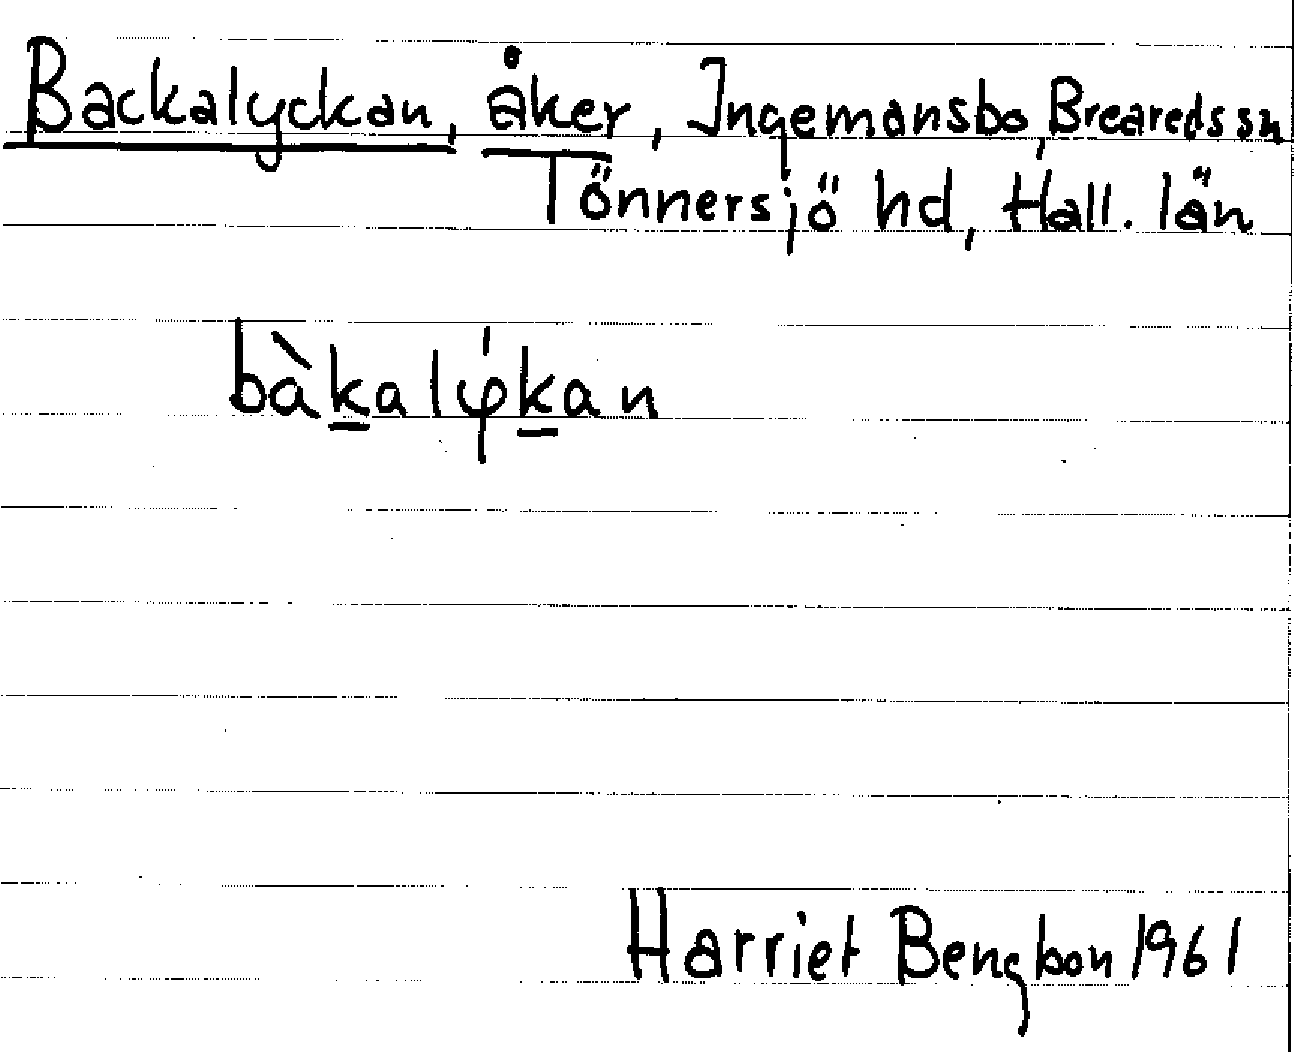 Backalyckan, åker, Ingemansbo, Breareds sn
Tönnersjö hd, Hall. län
bàkalφ́kan
Harriet 1961